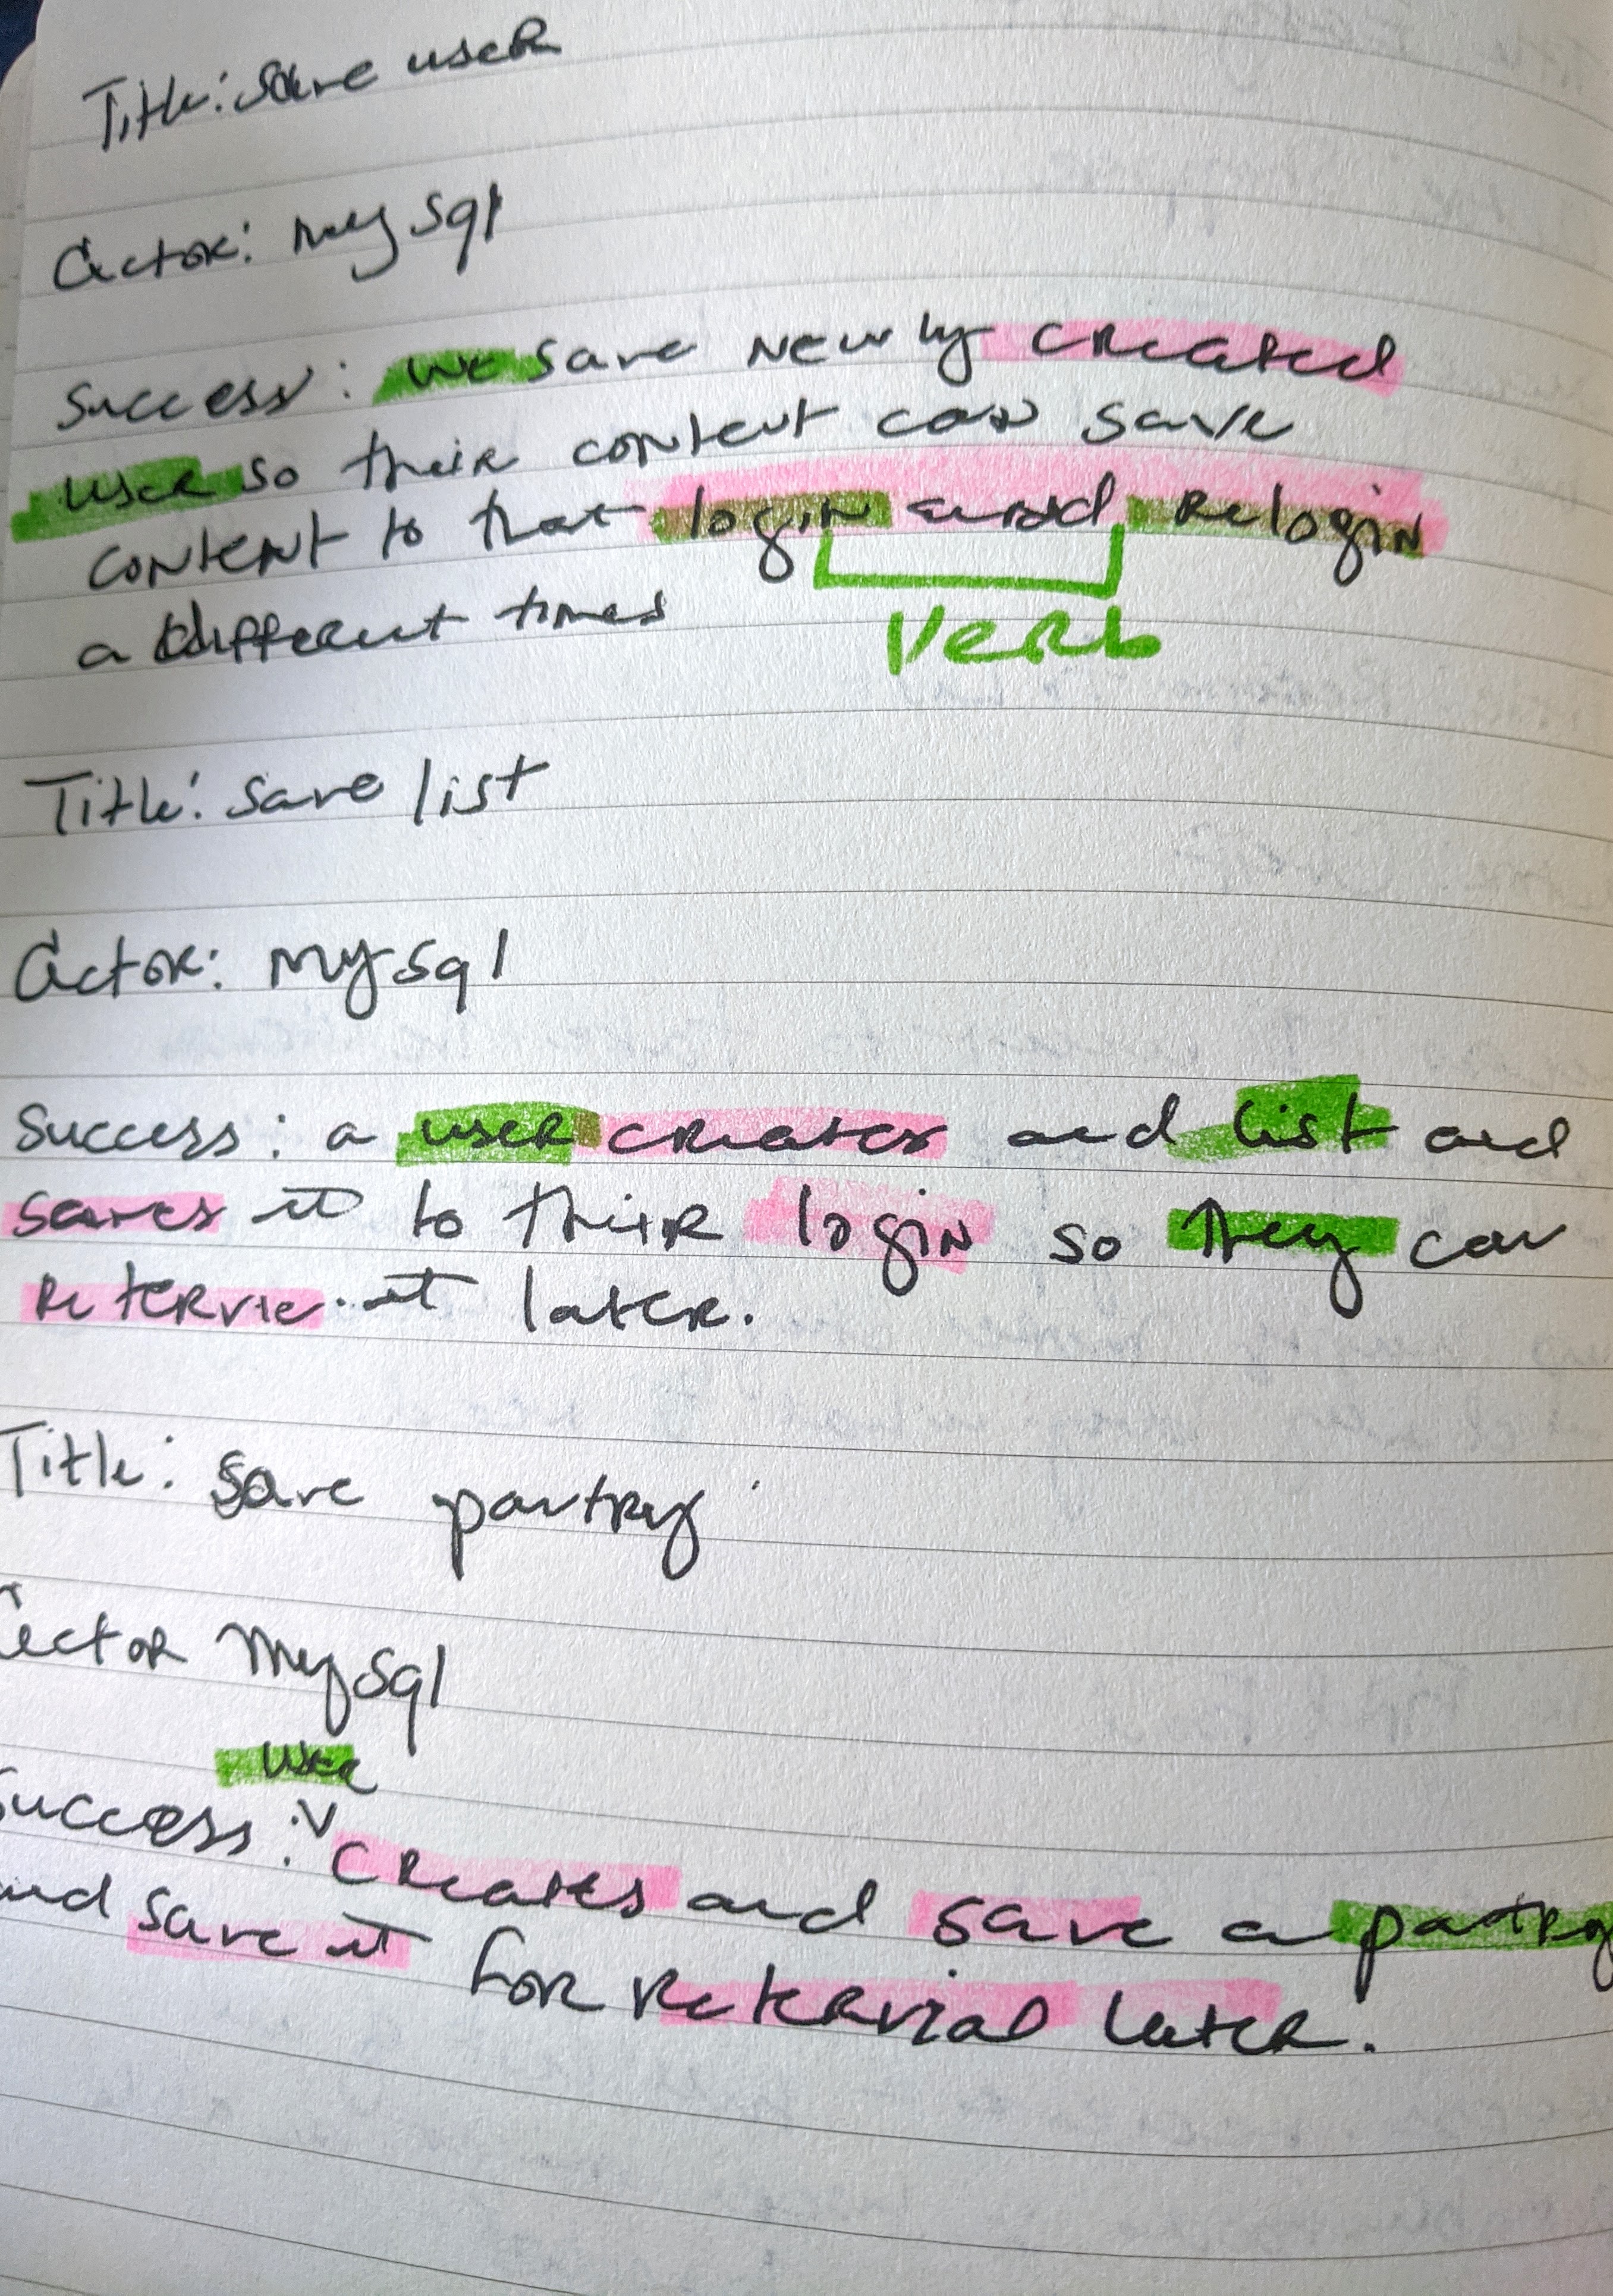 Title: save user
Actor: mysql
Success: we save newly created
user so their content can save
content to that login and relogin
a different times
Verb
Title: save list
Actor: mysql
Success: a user creates and list and
saves it to their login so they can
retervie it later.
Title: save pantry
Actor mysql
user
Success: creates and save a pantry
and save it for retervial later.